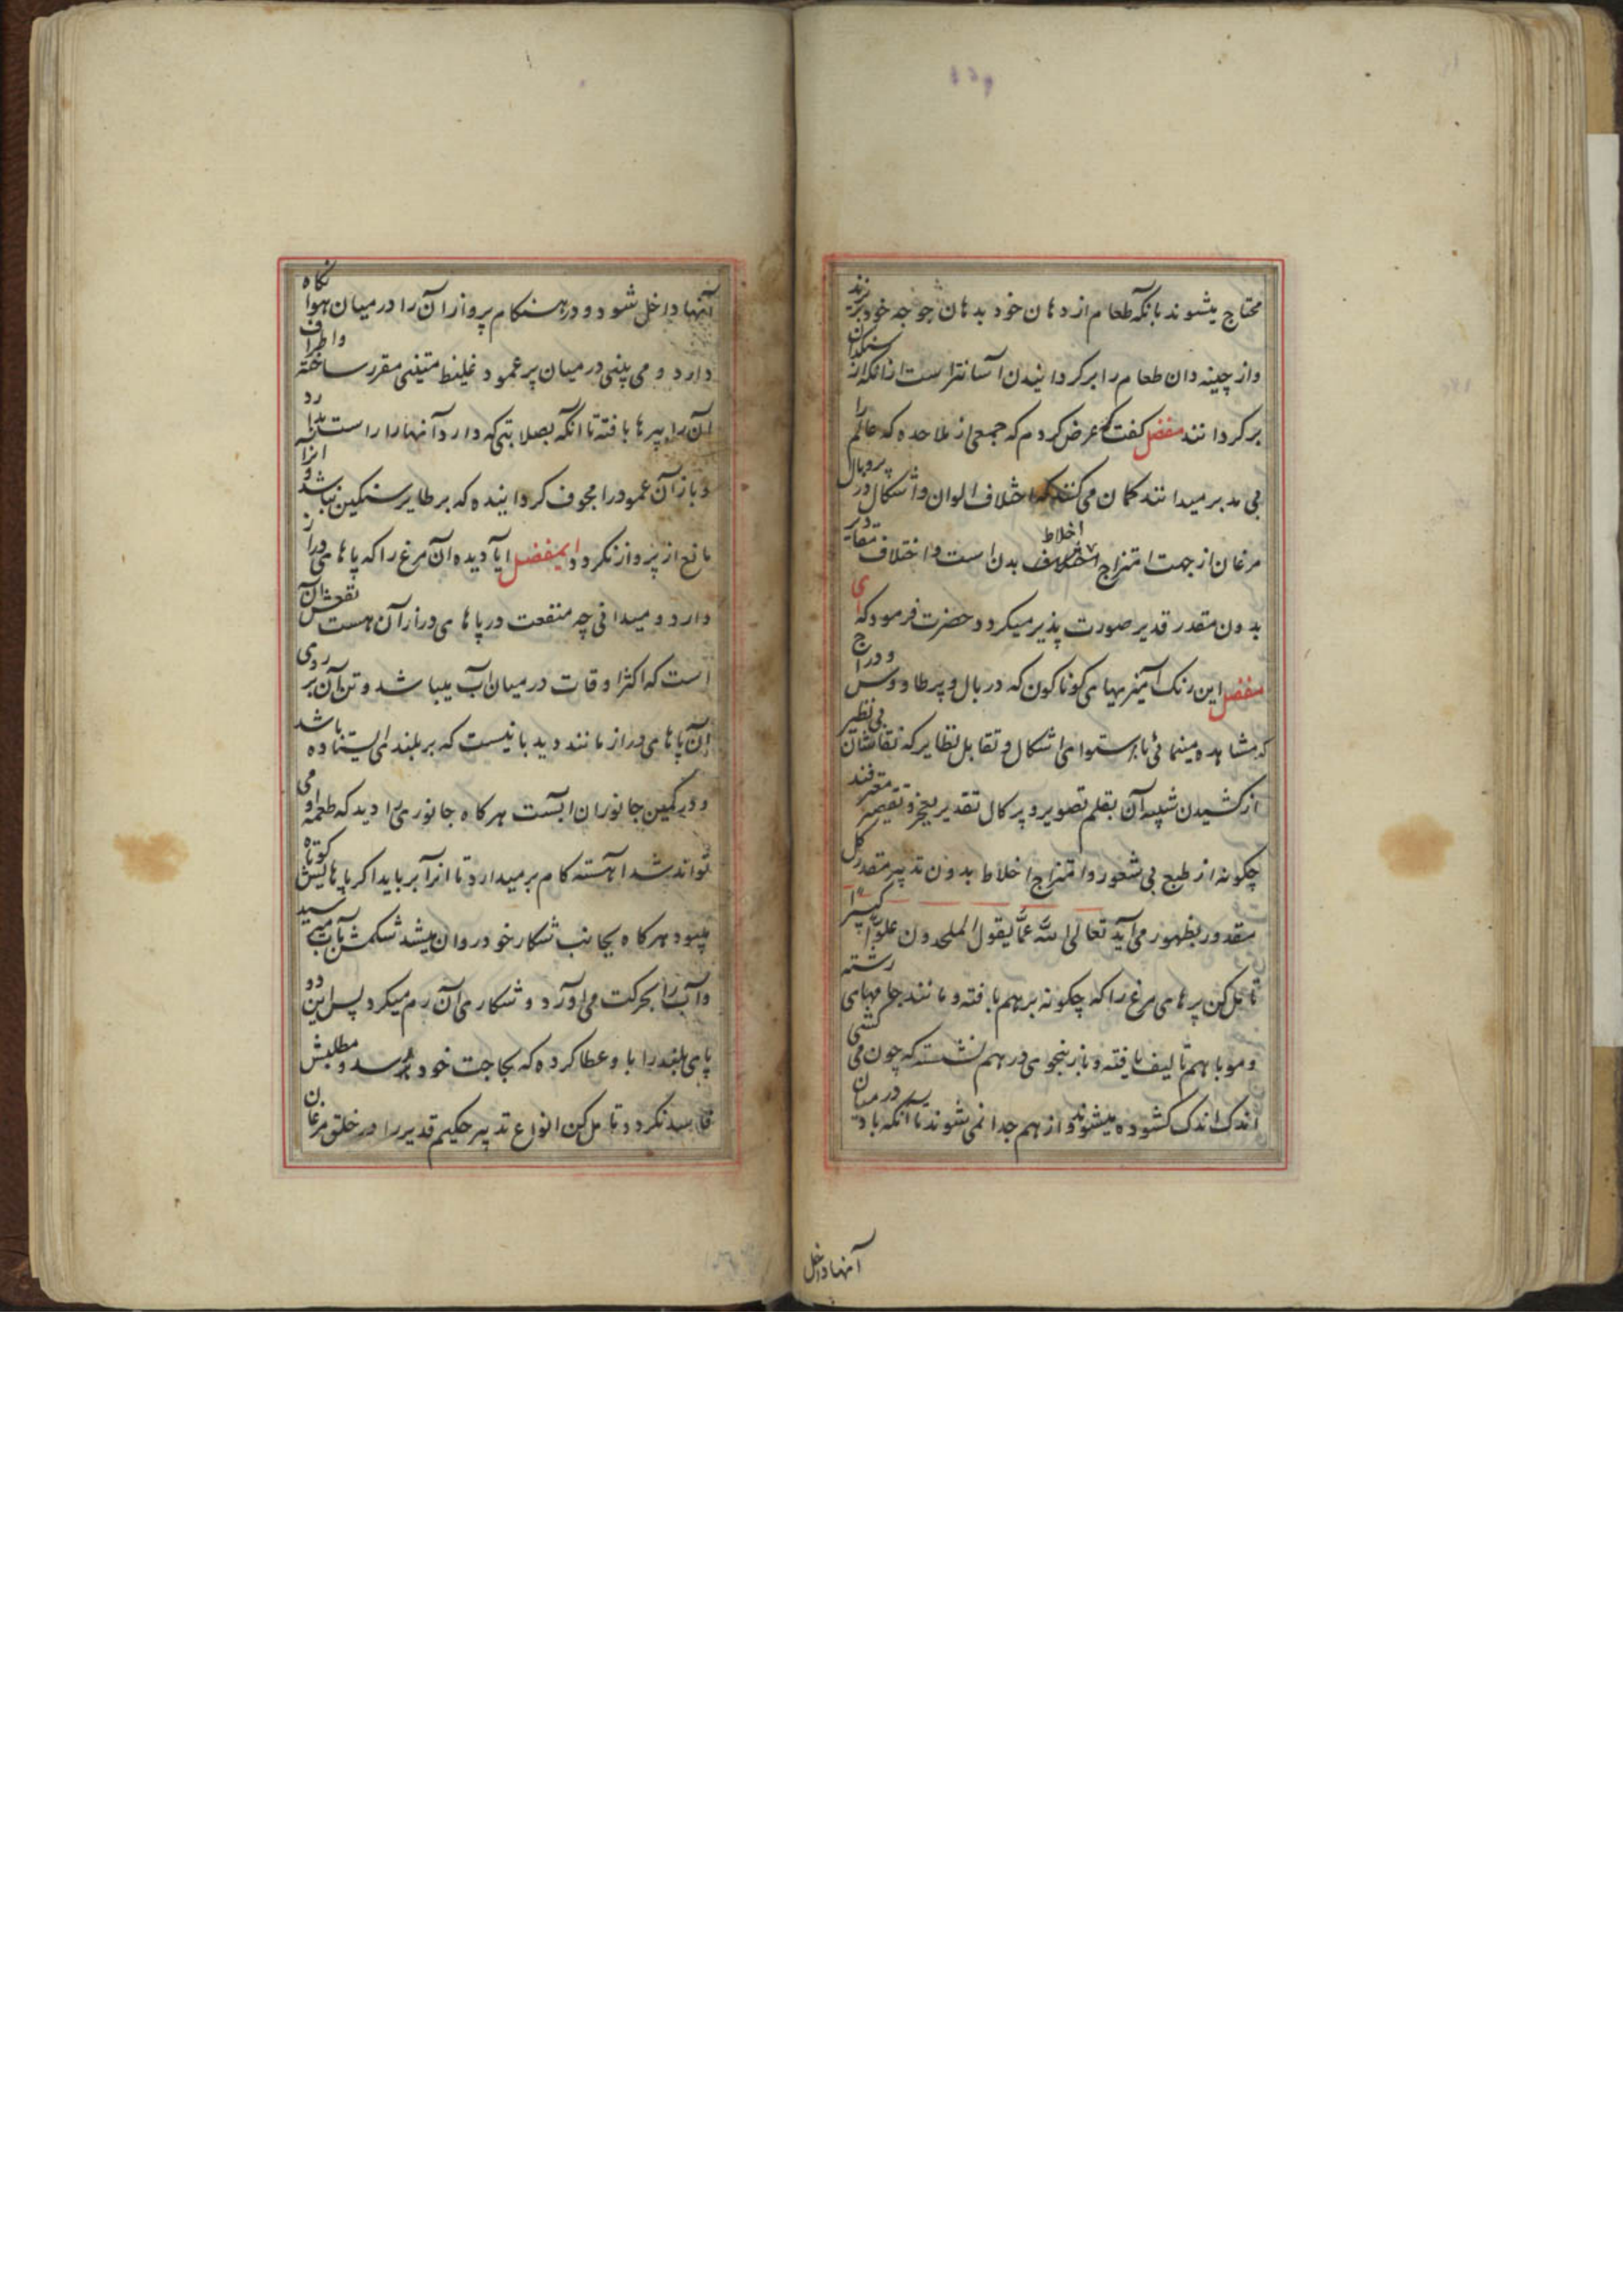 محتاج میشوند بانکه طعام از دهان خود بدهان جوجه خود بریزند
و از چینه دان طعام را برکردانیدن آسانتر است از انکه از سنکدان
برکردانند مفضل کفت که عرض کردم که جمعی از ملاحده که عالم را
بی مدبر میدانند کمان می کنند که اختلاف الوان و اشکال در پر و بال
مرغان از جهت امتزاج اخلاط بدن است و اختلاف مقادیر
بدون مقدر قدیر صورت پذیر میکردد حضرت فرمود که ای
مفضل این رنک آمیزیهای کوناکون که در بال و پر طاووس و دراج
که مشاهده مینمائی با استوای اشکال و تقابل نظایر که نقاشان بی نظیر
از کشیدن شبیه آن بقلم تصویر و پرکال تقدیر بعجز و تقصیر معترفند
چکونه از طبع بی شعور و امتزاج اخلاط بدون تدبیر مقدر کل
مقدور بظهور می آید تعالی الله عما یقول الملحدون علوا کبیرا
تامل کن پرهای مرغ را که چکونه برهم بافته و مانند جامهای رشته
و مو با هم تالیف یافته و بر نحوی در هم نشسته که چون می کشی
اندک اندک کشوده میشوند و از هم جدا نمی شوند تا آنکه باد در میان
آنها داخل
آنها داخل شود و در هنکام پرواز آن را در میان هوا نکاه
دارد و می بینی در میان پر عمود غلیظ متینی مقرر ساخته و اطراف
آن را بپرها بافته تا انکه بصلابتی که دارد آنها را راست بدارد
و باز آن عمود را مجوف کردانیده که بر طایر سنکین نباشد و انرا
مانع از پرواز نکردد ایمفضل ایا دیده آن مرغ را که پاهای دراز
دارد و میدانی چه منفعت در پاهای دراز آن هست نفعش آن
است که اکثر اوقات در میان آب میباشد و تن آن بر روی
آن پاهای دراز مانند دیدبانیست که بر بلندی ایستاده باشد
و در کمین جانوران ابست هرکاه جانوری را دید که طعمه او می
تواند شد آهسته کام برمیدارد تا انرا برباید اکر پاهایش کوتاه
میبود هرکاه بجانب شکار خود روان میشد شکمش بآب میرسید
و آب را بحرکت می اورد و شکاری آن رم میکرد پس این دو
پای بلند را باو عطا کرده که بحاجت خود برسد و مطلبش
فاسد نکردد تامل کن انواع تدبیر حکیم قدیر را در خلق مرغان